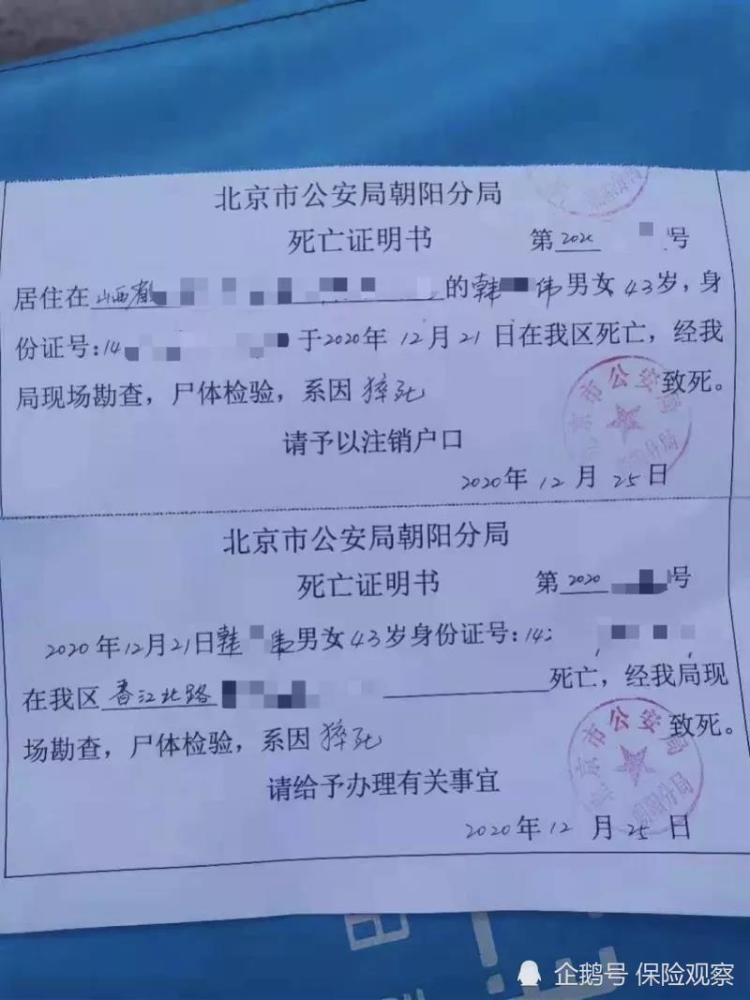 北京市公安局朝阳分局
死亡证明书 第2020号
居住在山西省的韩伟男女43岁，身
份证号:14于2020年12月21日在我区死亡，经我
局现场勘查，尸体检验，系因猝死致死。
请予以注销户口
2020年12月25日
北京市公安局朝阳分局
死亡证明书 第2020号
2020年12月21日韩伟男女43岁身份证号:142
在我区香江北路死亡，经我局现
场勘查，尸体检验，系因猝死致死。
北京市公安局
请给予办理有关事宜
2020年12月25日
企鹅号 保险观察